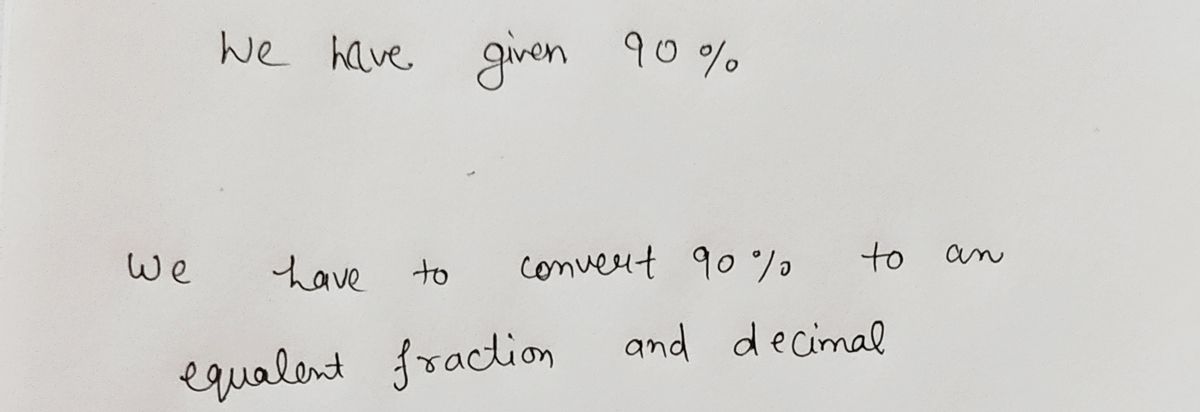 We have given 90%
We have to convert 90% to an
equalent fraction and decimal